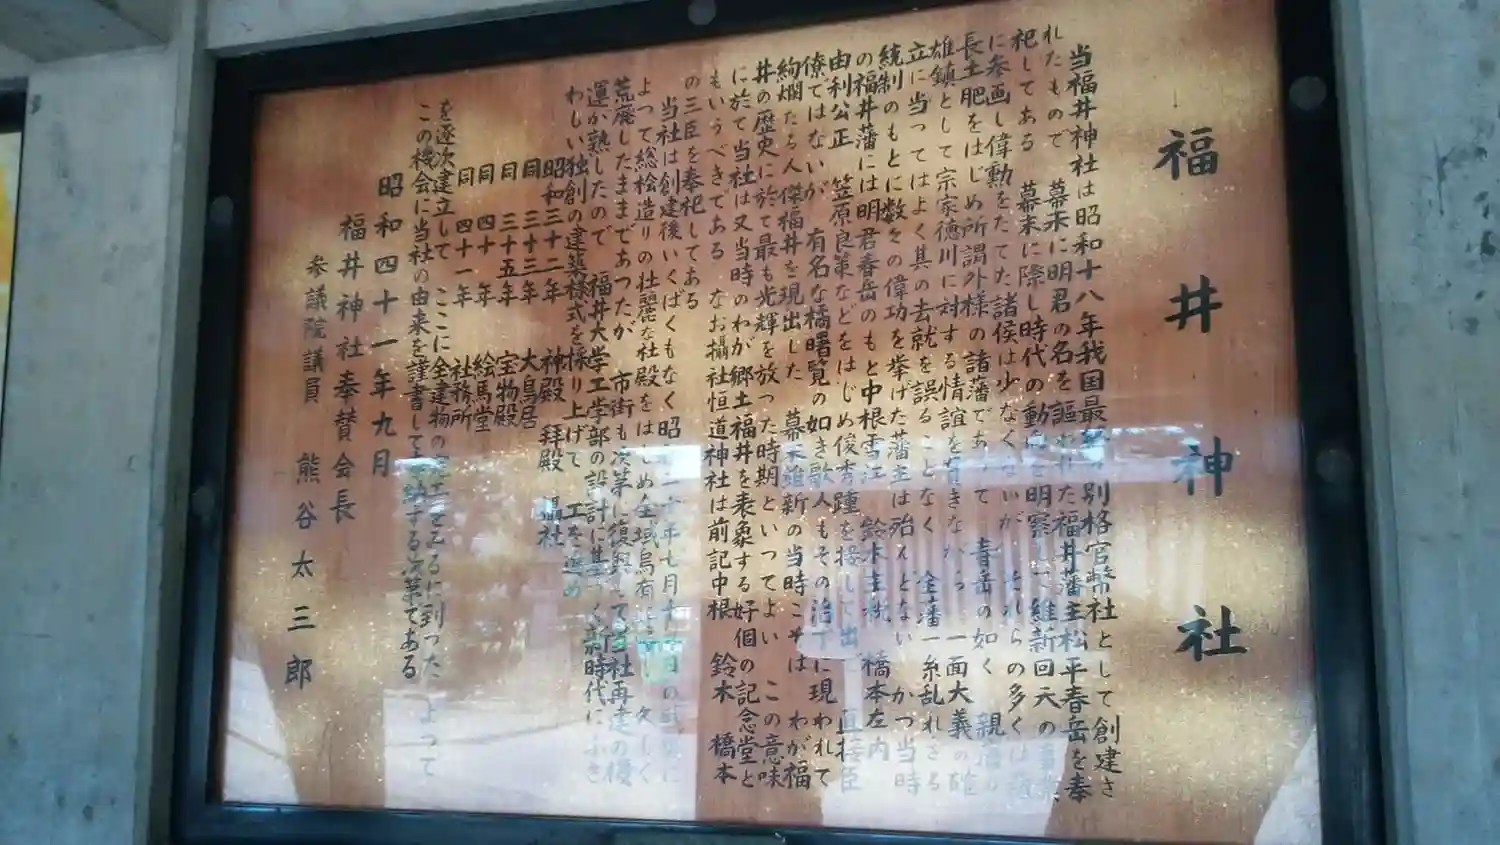 福井神社
当福井神社は昭和十八年我国最 別格官幣社として創建さ
れたもので 幕末に明君の名を謳われた福井藩主松平春岳を奉
祀してある 幕末に際し時代の動向を明察し 維新回天の
に参画し偉勲をたてた諸侯は少なくないが それらの多くは
長土肥をはじめ所謂外様の諸藩であって 春岳の如く 親藩の
雄鎮として宗家徳川に対する情誼を負きながら 一面大義の確
立に当ってはよく其の去就を誤ることなく 全藩一糸乱れざる
統制のもとに数々の偉功を挙げた藩主は殆んどない かつ当時
の福井藩には明君春岳のもと中根雪江 鈴木主税 橋本左内
由利公正 笠原良策などをはじめ俊秀踵を接して出で 直接臣
僚ではないが 有名な橘曙覧の如き歌人もその治下に現われて
絢爛たる人傑福井を現出した 幕末維新の当時こそは わが福
井の歴史に於て最も光輝を放った時期といってよい この意味
に於て当社は又当時のわが郷土福井を表象する好個の記念堂と
もいうべきである なお攝社恒道神社は前記中根 鈴木 橋本
の三臣を奉祀してある
当社は創建後いくばくもなく昭 二十年七月十 日の に
よって総桧造りの壮麗な社殿をはじめ全域烏有 久しく
荒廃したままであつたが 市街も次第に復興 て当社再建の機
運が熟したので 福井大学工学部の設計に基づく新時代にふさ
わしい独創の建築様式を採り上げて 工を進め
昭和三十二年 神殿 拝殿 攝社
同 三十三年 大鳥居
同 三十五年 宝物殿
同 四十年 絵馬堂
同 四十一年 社務所
を逐次建立して ここに全建物の 工をみるに到った よって
この機会に当社の由来を謹書して 納する次第である
昭和四十一年九月
福井神社奉賛会長
参議院議員 熊谷太三郎